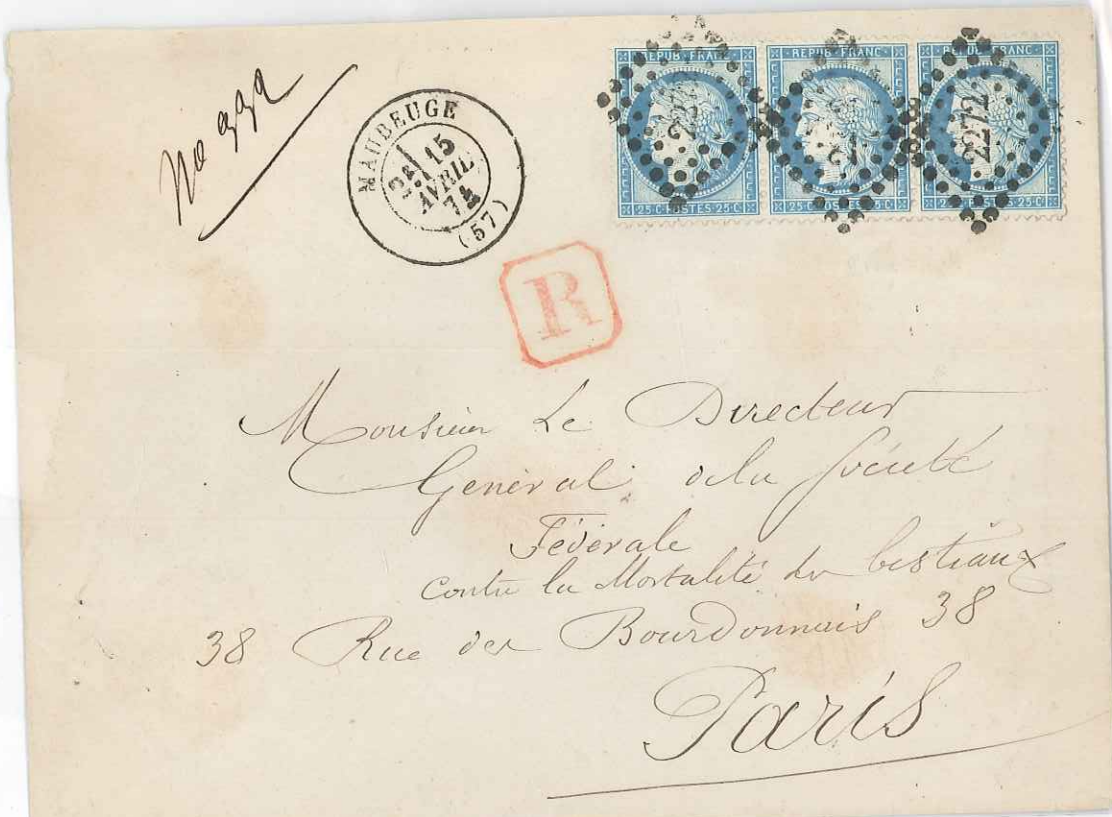 No 992
MAUBEUGE
2E/ 15
AVRIL
74
(57)
REPUB FRANC
25 C POSTES 25 C
REPUB FRANC
25 C POSTES 25 C
REPUB FRANC
25 C POSTES 25 C
2272
R
Monsieur Le Directeur
Général de la Société
Fédérale
contre la Mortalité des bestiaux
38 Rue des Bourdonnais 38
Paris